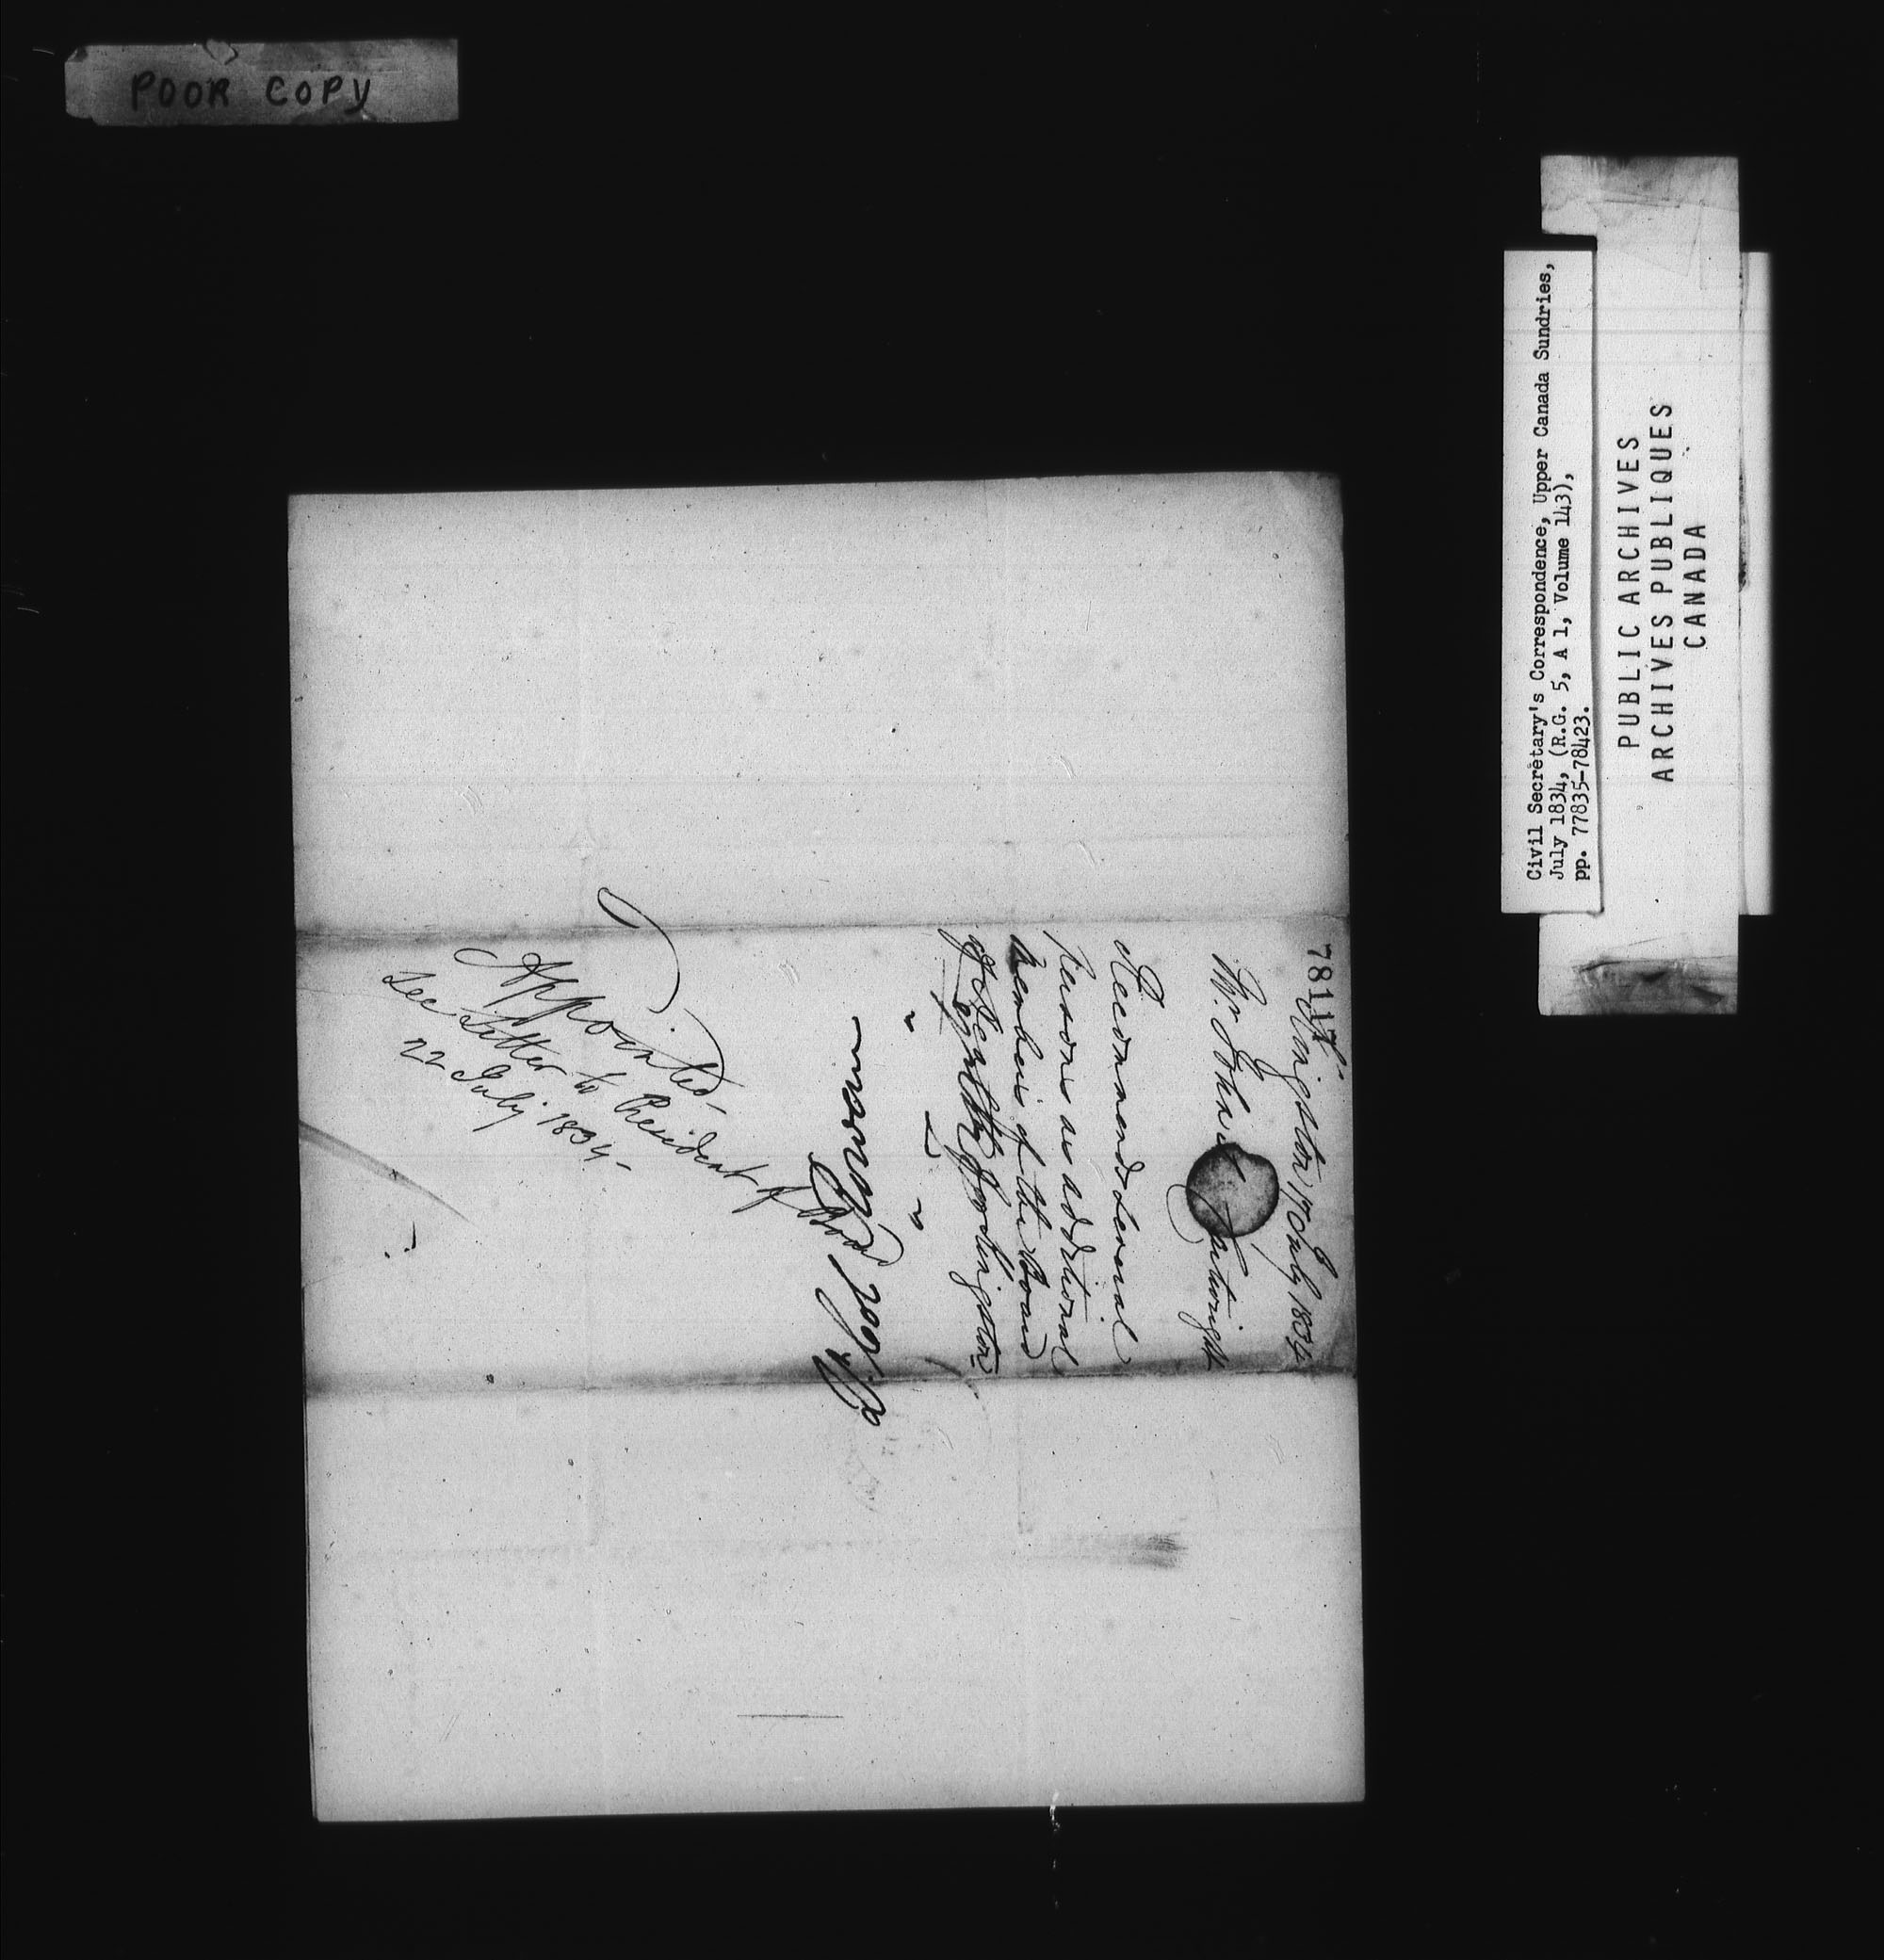 POOR COPY
Civil Secretary's Correspondence, Upper Canada Sundries,
July 1834, (R.G. 5, A 1, Volume 143),
pp. 77835-78423.
PUBLIC ARCHIVES
ARCHIVES PUBLIQUES
CANADA
78117
Kingston 17 July 1834
Mr John Cartwright
Recommends several
persons as additional
Members of the Board
of Health for Kingston
Lt Col Rowan
Appointed,
See Letter to President of Board
22 July 1834-